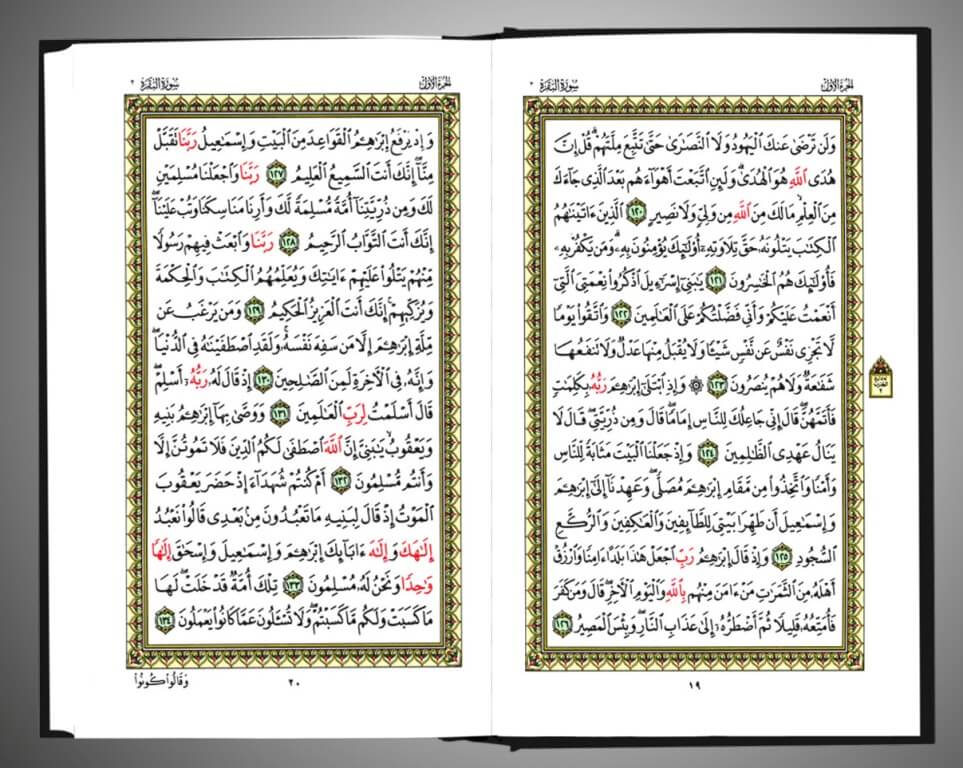 الجزء الأول
سورة البقرة ٢
وَلَن تَرْضَىٰ عَنكَ ٱلْيَهُودُ وَلَا ٱلنَّصَـٰرَىٰ حَتَّىٰ تَتَّبِعَ مِلَّتَهُمْ ۗ قُلْ إِنَّ
هُدَى ٱللَّهِ هُوَ ٱلْهُدَىٰ ۗ وَلَئِنِ ٱتَّبَعْتَ أَهْوَآءَهُم بَعْدَ ٱلَّذِى جَآءَكَ
مِنَ ٱلْعِلْمِ ۙ مَا لَكَ مِنَ ٱللَّهِ مِن وَلِىٍّ وَلَا نَصِيرٍ ١٢٠ ٱلَّذِينَ ءَاتَيْنَـٰهُمُ
ٱلْكِتَـٰبَ يَتْلُونَهُۥ حَقَّ تِلَاوَتِهِۦٓ أُو۟لَـٰٓئِكَ يُؤْمِنُونَ بِهِۦ ۗ وَمَن يَكْفُرْ بِهِۦ
فَأُو۟لَـٰٓئِكَ هُمُ ٱلْخَـٰسِرُونَ ١٢١ يَـٰبَنِىٓ إِسْرَٰٓءِيلَ ٱذْكُرُوا۟ نِعْمَتِىَ ٱلَّتِىٓ
أَنْعَمْتُ عَلَيْكُمْ وَأَنِّى فَضَّلْتُكُمْ عَلَى ٱلْعَـٰلَمِينَ ١٢٢ وَٱتَّقُوا۟ يَوْمًا
لَّا تَجْزِى نَفْسٌ عَن نَّفْسٍ شَيْـًٔا وَلَا يُقْبَلُ مِنْهَا عَدْلٌ وَلَا تَنفَعُهَا
شَفَـٰعَةٌ وَلَا هُمْ يُنصَرُونَ ١٢٣ ۞ وَإِذِ ٱبْتَلَىٰٓ إِبْرَٰهِـۧمَ رَبُّهُۥ بِكَلِمَـٰتٍ
فَأَتَمَّهُنَّ ۖ قَالَ إِنِّى جَاعِلُكَ لِلنَّاسِ إِمَامًا ۖ قَالَ وَمِن ذُرِّيَّتِى ۖ قَالَ لَا
يَنَالُ عَهْدِى ٱلظَّـٰلِمِينَ ١٢٤ وَإِذْ جَعَلْنَا ٱلْبَيْتَ مَثَابَةً لِّلنَّاسِ
وَأَمْنًا وَٱتَّخِذُوا۟ مِن مَّقَامِ إِبْرَٰهِـۧمَ مُصَلًّى ۖ وَعَهِدْنَآ إِلَىٰٓ إِبْرَٰهِـۧمَ
وَإِسْمَـٰعِيلَ أَن طَهِّرَا بَيْتِىَ لِلطَّآئِفِينَ وَٱلْعَـٰكِفِينَ وَٱلرُّكَّعِ
ٱلسُّجُودِ ١٢٥ وَإِذْ قَالَ إِبْرَٰهِـۧمُ رَبِّ ٱجْعَلْ هَـٰذَا بَلَدًا ءَامِنًا وَٱرْزُقْ
أَهْلَهُۥ مِنَ ٱلثَّمَرَٰتِ مَنْ ءَامَنَ مِنْهُم بِٱللَّهِ وَٱلْيَوْمِ ٱلْـَٔاخِرِ ۖ قَالَ وَمَن كَفَرَ
فَأُمَتِّعُهُۥ قَلِيلًا ثُمَّ أَضْطَرُّهُۥٓ إِلَىٰ عَذَابِ ٱلنَّارِ ۖ وَبِئْسَ ٱلْمَصِيرُ ١٢٦
١٩
الجزء الأول
سورة البقرة ٢
وَإِذْ يَرْفَعُ إِبْرَٰهِـۧمُ ٱلْقَوَاعِدَ مِنَ ٱلْبَيْتِ وَإِسْمَـٰعِيلُ رَبَّنَا تَقَبَّلْ
مِنَّآ ۖ إِنَّكَ أَنتَ ٱلسَّمِيعُ ٱلْعَلِيمُ ١٢٧ رَبَّنَا وَٱجْعَلْنَا مُسْلِمَيْنِ
لَكَ وَمِن ذُرِّيَّتِنَآ أُمَّةً مُّسْلِمَةً لَّكَ وَأَرِنَا مَنَاسِكَنَا وَتُبْ عَلَيْنَآ ۖ
إِنَّكَ أَنتَ ٱلتَّوَّابُ ٱلرَّحِيمُ ١٢٨ رَبَّنَا وَٱبْعَثْ فِيهِمْ رَسُولًا
مِّنْهُمْ يَتْلُوا۟ عَلَيْهِمْ ءَايَـٰتِكَ وَيُعَلِّمُهُمُ ٱلْكِتَـٰبَ وَٱلْحِكْمَةَ
وَيُزَكِّيهِمْ ۚ إِنَّكَ أَنتَ ٱلْعَزِيزُ ٱلْحَكِيمُ ١٢٩ وَمَن يَرْغَبُ عَن
مِّلَّةِ إِبْرَٰهِـۧمَ إِلَّا مَن سَفِهَ نَفْسَهُۥ ۚ وَلَقَدِ ٱصْطَفَيْنَـٰهُ فِى ٱلدُّنْيَا ۖ
وَإِنَّهُۥ فِى ٱلْـَٔاخِرَةِ لَمِنَ ٱلصَّـٰلِحِينَ ١٣٠ إِذْ قَالَ لَهُۥ رَبُّهُۥٓ أَسْلِمْ ۖ
قَالَ أَسْلَمْتُ لِرَبِّ ٱلْعَـٰلَمِينَ ١٣١ وَوَصَّىٰ بِهَآ إِبْرَٰهِـۧمُ بَنِيهِ
وَيَعْقُوبُ يَـٰبَنِىَّ إِنَّ ٱللَّهَ ٱصْطَفَىٰ لَكُمُ ٱلدِّينَ فَلَا تَمُوتُنَّ إِلَّا
وَأَنتُم مُّسْلِمُونَ ١٣٢ أَمْ كُنتُمْ شُهَدَآءَ إِذْ حَضَرَ يَعْقُوبَ
ٱلْمَوْتُ إِذْ قَالَ لِبَنِيهِ مَا تَعْبُدُونَ مِنۢ بَعْدِى قَالُوا۟ نَعْبُدُ
إِلَـٰهَكَ وَإِلَـٰهَ ءَابَآئِكَ إِبْرَٰهِـۧمَ وَإِسْمَـٰعِيلَ وَإِسْحَـٰقَ إِلَـٰهًا
وَٰحِدًا وَنَحْنُ لَهُۥ مُسْلِمُونَ ١٣٣ تِلْكَ أُمَّةٌ قَدْ خَلَتْ ۖ لَهَا
مَا كَسَبَتْ وَلَكُم مَّا كَسَبْتُمْ ۖ وَلَا تُسْـَٔلُونَ عَمَّا كَانُوا۟ يَعْمَلُونَ ١٣٤
٢٠
وقالوا كونوا